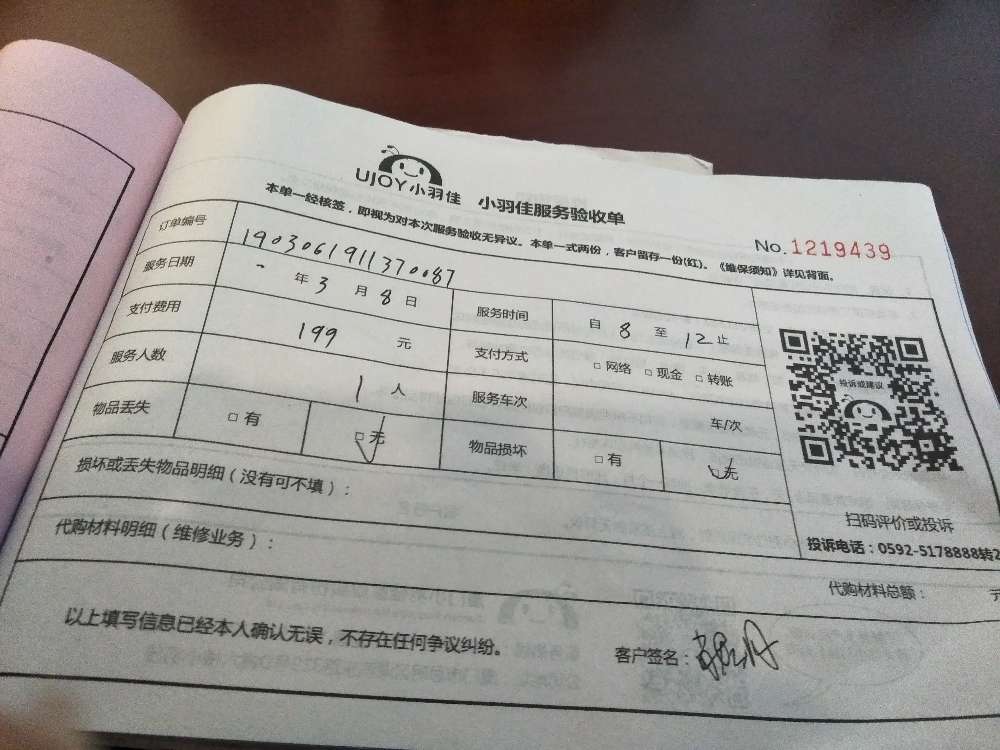 UJOY小羽佳 小羽佳服务验收单
本单一经核签，即视为对本次服务验收无异议。本单一式两份，客户留存一份(红)。《维保须知》详见背面。
No.1219439
订单编号 1903061911370087
服务日期 年3月8日 服务时间 自8至12止
支付费用 199元 支付方式 □网络 □现金 □转账
服务人数 1人 服务车次 车/次
物品丢失 □有 □无 物品损坏 □有 □无
投诉或建议
扫码评价或投诉
投诉电话：0592-5178888转2
损坏或丢失物品明细（没有可不填）：
代购材料明细（维修业务）：
代购材料总额： 元
以上填写信息已经本人确认无误，不存在任何争议纠纷。
客户签名：